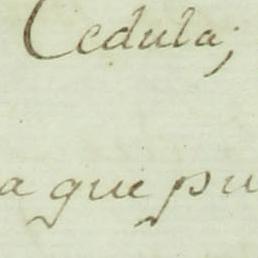 Cedula;
a que pu